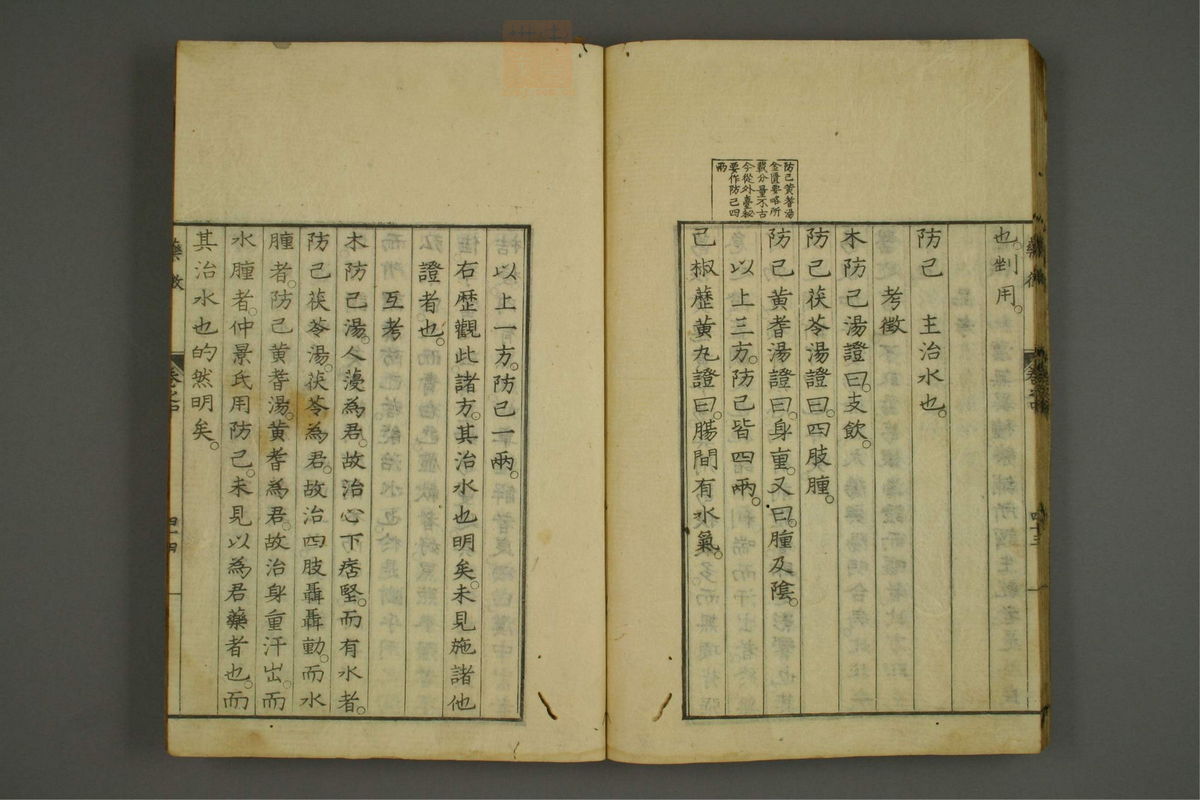 也。剉用。
防己　主治水也。
考徵
木防己湯證曰。支飲。
防己茯苓湯證曰。四肢腫。
防己黃耆湯證曰。身重。又曰。腫及陰。
以上三方。防己皆四兩。
己椒藶黃丸證曰。腸間有水氣。
防己黃耆湯
金匱要略所
載分量不古
今從外臺秘
要作防己四
兩
以上一方。防己一兩。
右歷觀此諸方。其治水也明矣。未見施諸他
證者也。
互考
木防己湯。人蓡為君。故治心下痞堅。而有水者。
防己茯苓湯。茯苓為君。故治四肢聶聶動。而水
腫者。防己黃耆湯。黃耆為君。故治身重汗出。而
水腫者。仲景氏用防己。未見以為君藥者也。而
其治水也的然明矣。
藥徵